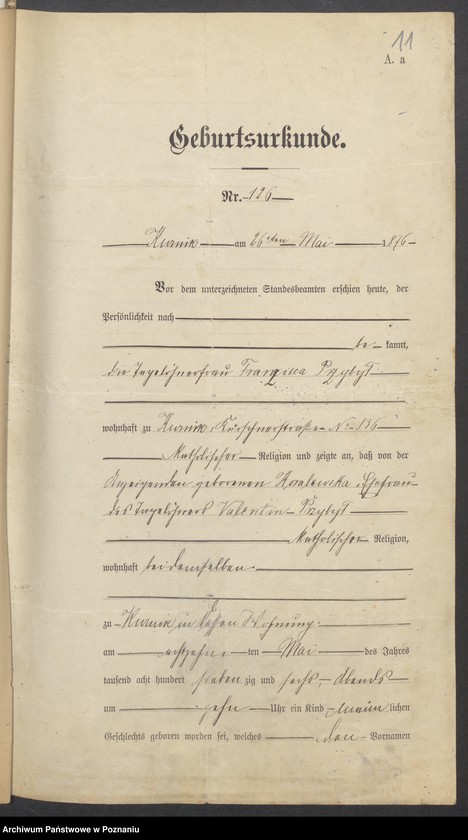 11
A. a
Geburtsurkunde.
Nr. 126
Kurnik am 26ten Mai 1876
Vor dem unterzeichneten Standesbeamten erschien heute, der
Persönlichkeit nach
be kannt,
die Tagelöhnerfrau Przybyt
wohnhaft zu Kurnik, Kürschnerstraße No 136
Katholischer Religion und zeigte an, daß von der
Anzeigenden geborenen Kowalewska, Ehefrau
des Tagelöhners Valentin Przybyt
Katholischer Religion,
wohnhaft bei demselben
zu Kurnik in dessen Wohnung
am achtzehn ten Mai des Jahres
tausend acht hundert sieben zig und sechs, Abends
um zehn Uhr ein Kind männ lichen
Geschlechts geboren worden sei, welches den Vornamen
Archiwum Państwowe w Poznaniu